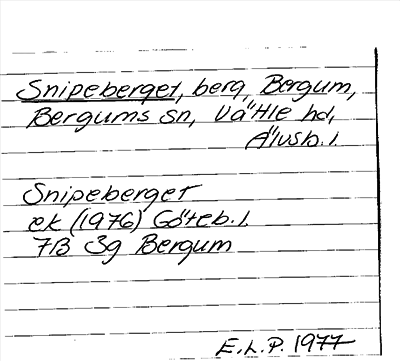 Snipeberget, berg, Bergum,
Bergums sn, Vättle hd,
Älvsb. l.
Snipeberget
ek (1976) Göteb. l.
7B 3g Bergum
E.L.P. 1977